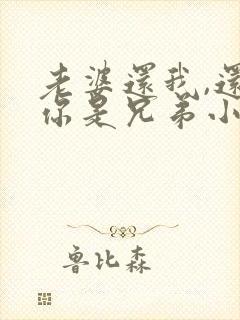 老婆還我,還
你是兄弟小
魯比森